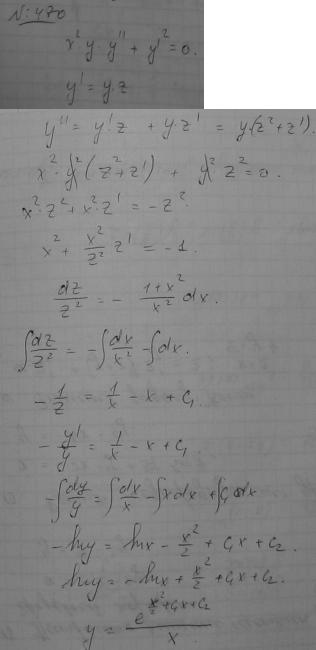 N: 470
x² y · y'' + y'² = 0.
y' = y · z
y'' = y' z + y · z' = y · (z² + z').
x² · y² (z² + z') + y² z² = 0.
x² · z² + x² · z' = - z².
x² + x²/z² z' = -1.
dz/z² = - (1+x²)/x² dx.
∫ dz/z² = - ∫ dx/x² - ∫ dx.
- 1/z = 1/x - x + C₁
- y'/y = 1/x - x + C₁
- ∫ dy/y = ∫ dx/x - ∫ x dx + ∫ C₁ dx
- ln y = ln x - x²/2 + C₁x + C₂.
ln y = - ln x + x²/2 + C₁x + C₂.
y = e^(x²/2 + C₁x + C₂) / x.